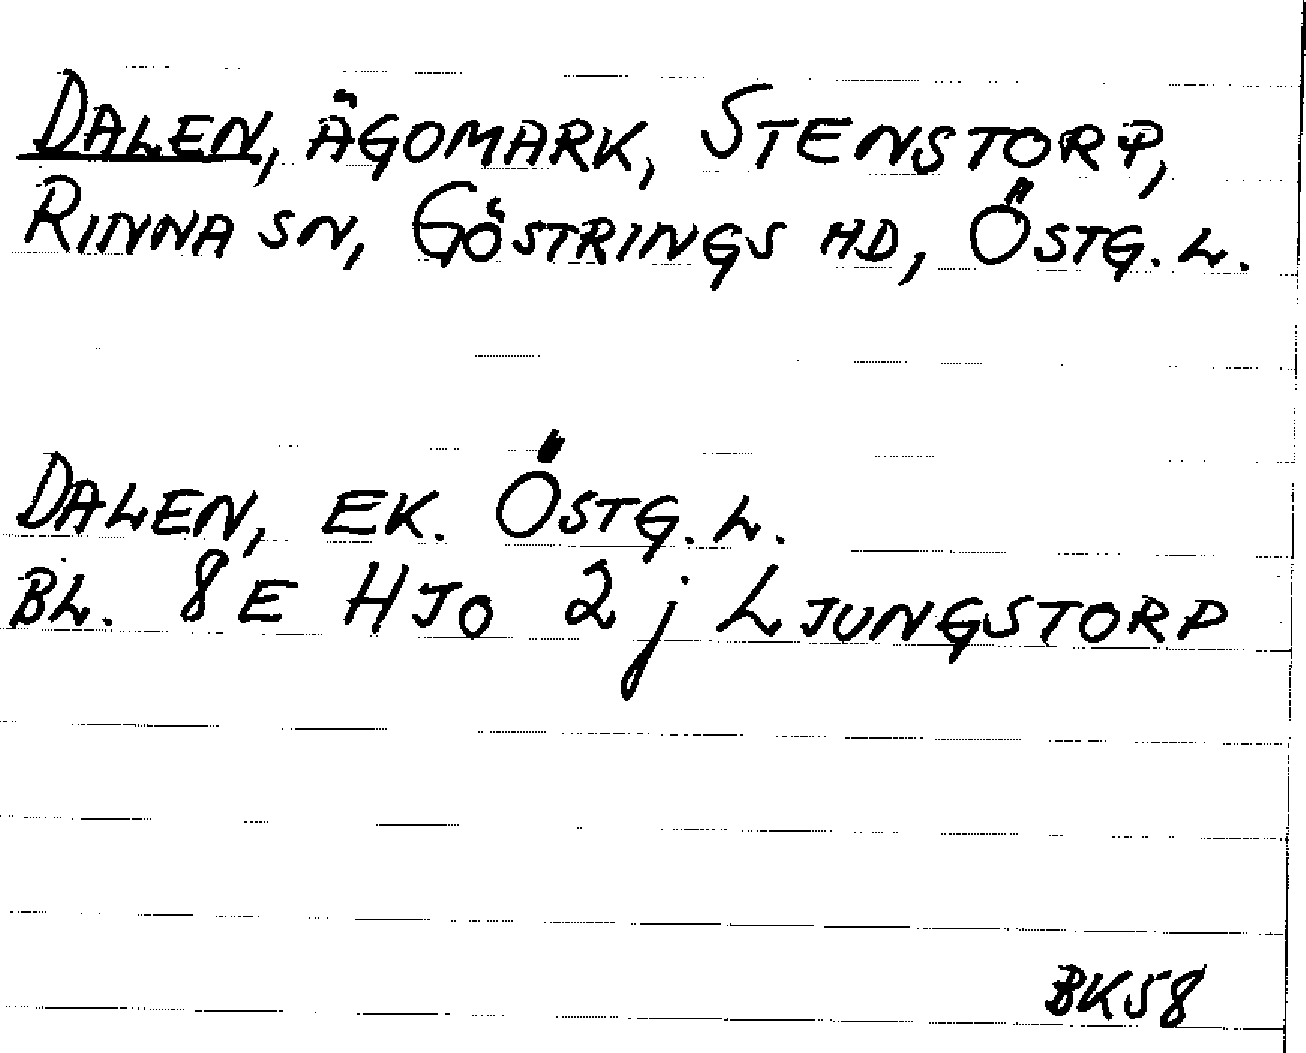 DALEN, ÄGOMARK, STENSTORP,
RINNA SN, GÖSTRINGS HD, ÖSTG. L.
DALEN, EK. ÖSTG. L.
BL. 8E HJO 2j LJUNGSTORP
BK58